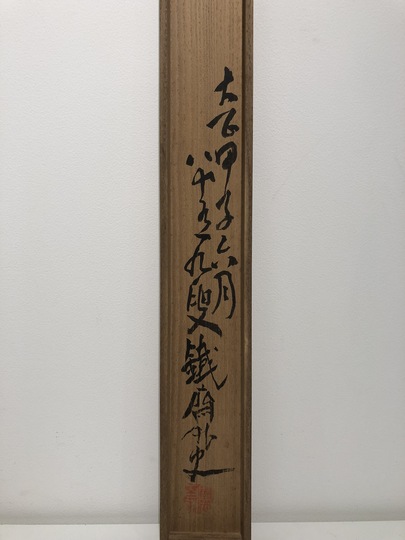 大正甲子六月
八十有九叟鐵齋外史